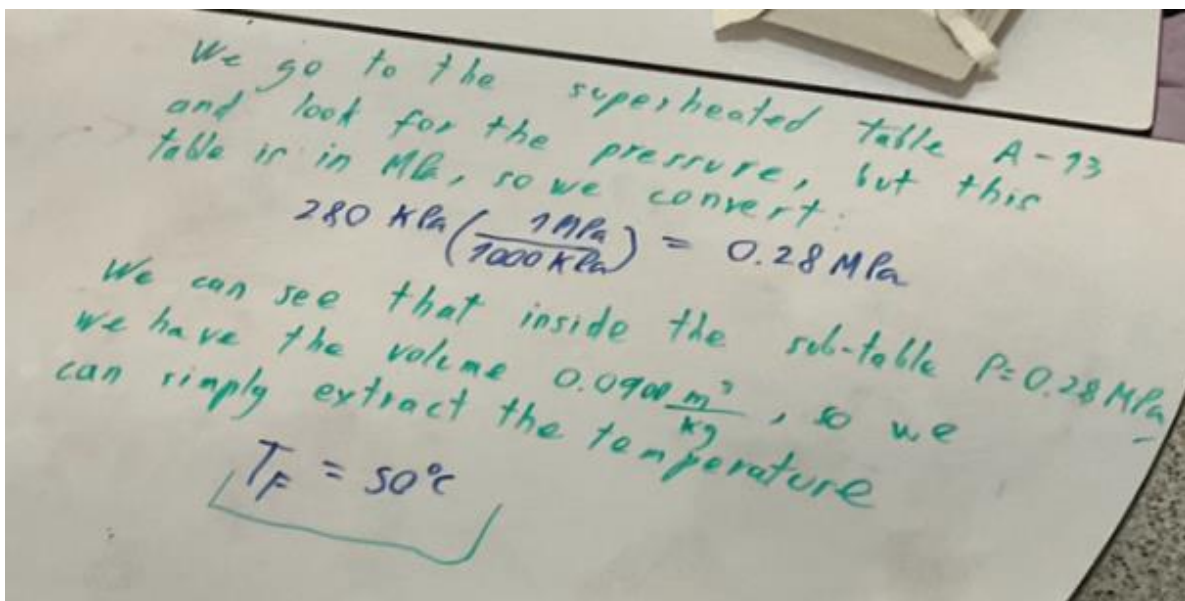 We go to the superheated table A-13
and look for the pressure, but this
table is in MPa, so we convert:
280 KPa (1MPa / 1000 KPa) = 0.28 MPa
We can see that inside the sub-table P=0.28 MPa
we have the volume 0.0900 m³/kg, so we
can simply extract the temperature
T_F = 50°C